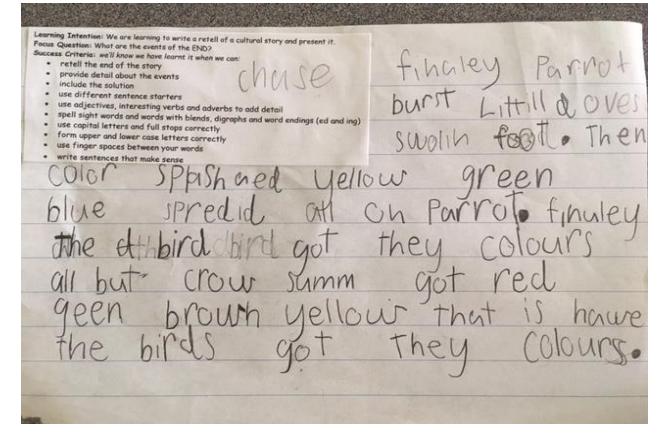 Learning Intention: We are learning to write a retell of a cultural story and present it.
Focus Question: What are the events of the END?
Success Criteria: we'll know we have learnt it when we can:
• retell the end of the story
• provide detail about the events
• include the solution
• use different sentence starters
• use adjectives, interesting verbs and adverbs to add detail
• spell sight words and words with blends, digraphs and word endings (ed and ing)
• use capital letters and full stops correctly
• form upper and lower case letters correctly
• use finger spaces between your words
• write sentences that make sense
chase
finaley Parrot
burst Littill doves
swolin foot. Then
color spashaed yellow green
blue spredid all on Parrot. finuley
the bird bird got they colours
all but crow summ got red
geen brown yellow that is hawe
the birds got they colours.